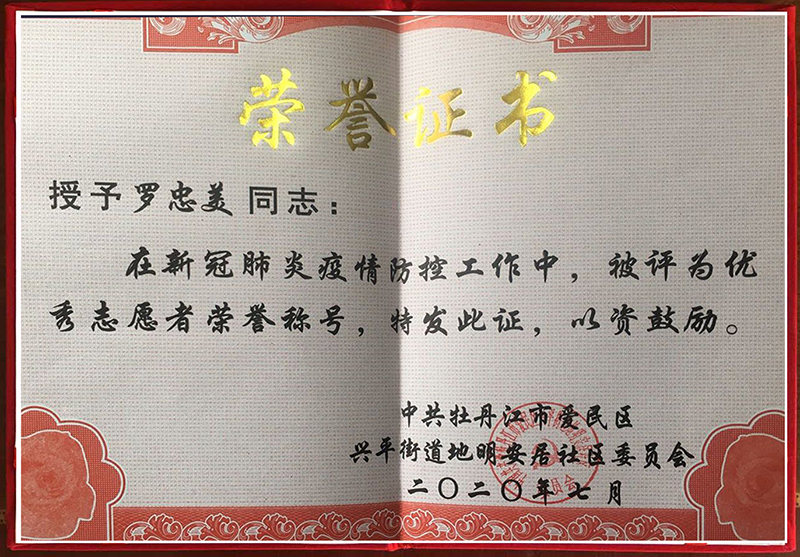 荣誉证书
授予罗忠美同志：
在新冠肺炎疫情防控工作中，被评为优
秀志愿者荣誉称号，特发此证，以资鼓励。
中共牡丹江市爱民区
兴平街道地明安居社区委员会
二〇二〇年七月